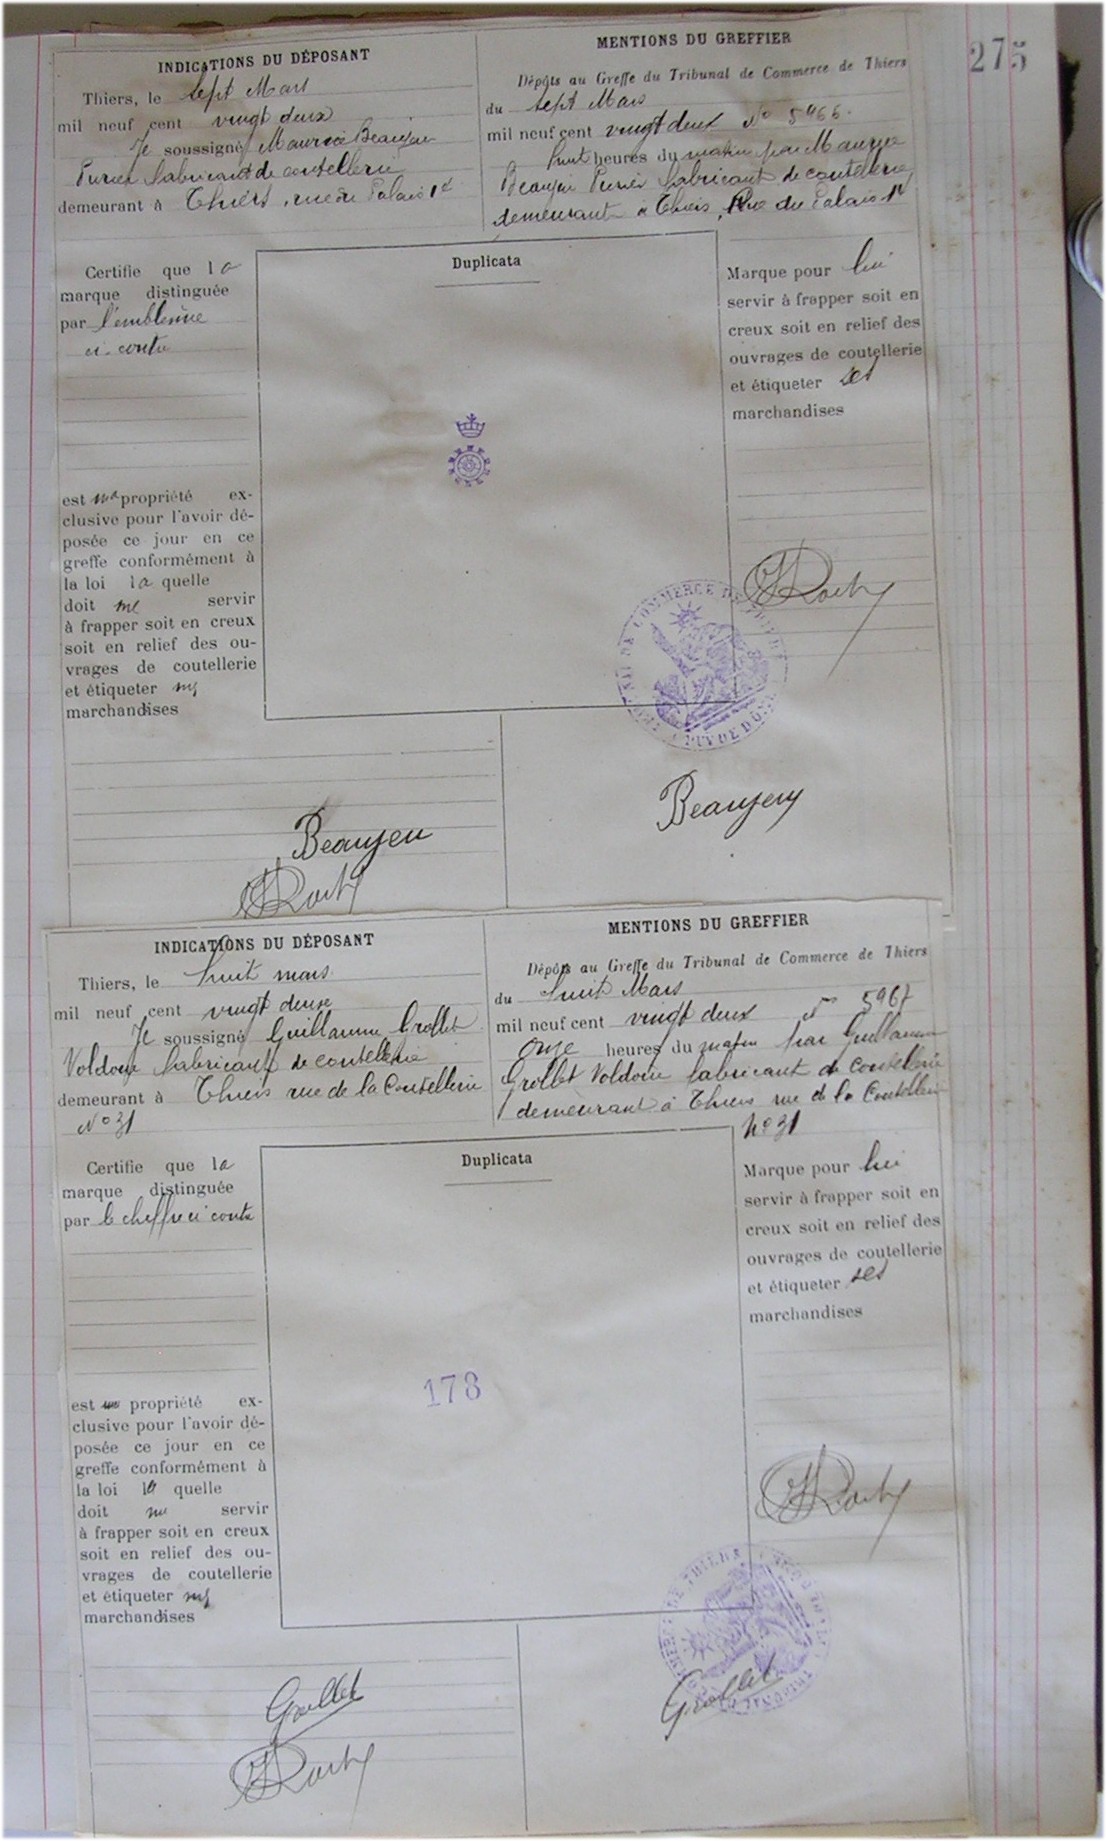 275
INDICATIONS DU DÉPOSANT
Thiers, le sept Mars
mil neuf cent vingt deux
Je soussigné Maurice Beaujeu
fabricant de coutellerie
demeurant à Thiers, rue du Palais 1
MENTIONS DU GREFFIER
Dépôts au Greffe du Tribunal de Commerce de Thiers
du sept Mars
mil neuf cent vingt deux No 5966.
huit heures du matin par Maurice
Beaujeu fabricant de coutellerie,
demeurant à Thiers, Rue du Palais 1
Certifie que la
marque distinguée
par l'emblème
ci-contre
est ma propriété ex-
clusive pour l'avoir dé-
posée ce jour en ce
greffe conformément à
la loi la quelle
doit me servir
à frapper soit en creux
soit en relief des ou-
vrages de coutellerie
et étiqueter mes
marchandises
Duplicata
Marque pour lui
servir à frapper soit en
creux soit en relief des
ouvrages de coutellerie
et étiqueter ses
marchandises
Beaujeu
Beaujeu
INDICATIONS DU DÉPOSANT
Thiers, le huit mars
mil neuf cent vingt deux
Je soussigné Guillaume Grollet
Voldoire fabricant de coutellerie
demeurant à Thiers rue de la Coutellerie
No 31
MENTIONS DU GREFFIER
Dépôts au Greffe du Tribunal de Commerce de Thiers
du huit Mars
mil neuf cent vingt deux No 5967
Onze heures du matin par Guillaume
Grollet Voldoire fabricant de coutellerie
demeurant à Thiers rue de la Coutellerie
No 31
Certifie que la
marque distinguée
par le chiffre ci contre
est ma propriété ex-
clusive pour l'avoir dé-
posée ce jour en ce
greffe conformément à
la loi la quelle
doit me servir
à frapper soit en creux
soit en relief des ou-
vrages de coutellerie
et étiqueter mes
marchandises
Duplicata
173
Marque pour lui
servir à frapper soit en
creux soit en relief des
ouvrages de coutellerie
et étiqueter ses
marchandises
Grollet
Grollet